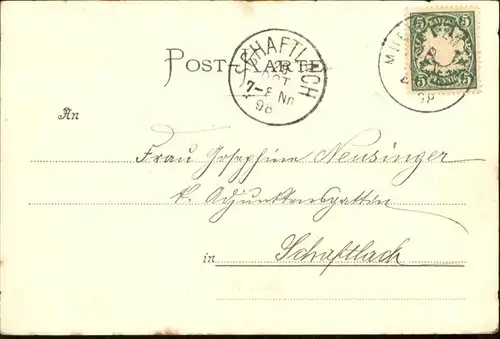 POST-KARTE
SCHAFTLACH
OCT
7-8 Nm
98
5 BAYERN 5
5 PFENNIG 5
An
Frau Josephine Neusinger
k. Adjunktensgattin
in Schaftlach